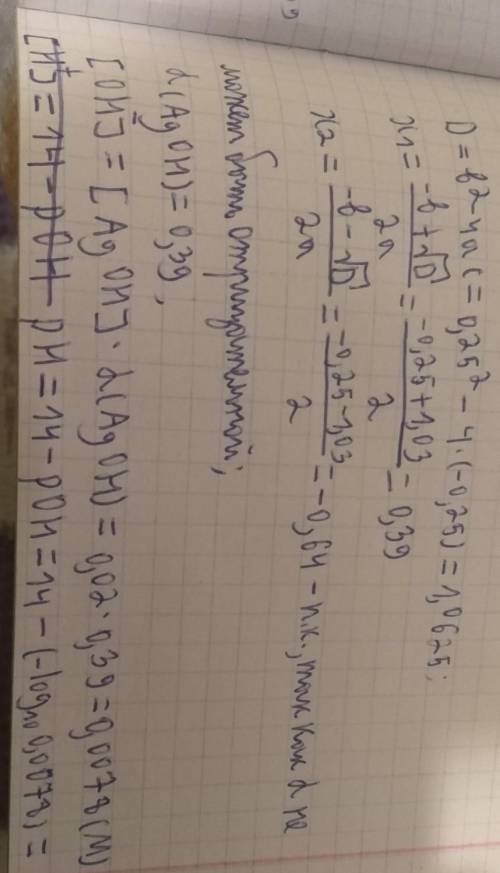 D = b2 4ac = 0,25² - 4·(-0,25) = 1,0625;
x1 = (-b+√D)/2a = (-0,25+1,03)/2 = 0,39
x2 = (-b-√D)/2a = (-0,25-1,03)/2 = -0,64 - п.к., так как α не
может быть отрицательной;
α(AgOH) = 0,39,
[OH⁻] = [AgOH]·α(AgOH) = 0,02·0,39 = 0,0078(M)
[H⁺] = 14 - pOH pH = 14 - pOH = 14 - (-log₁₀0,0078) =